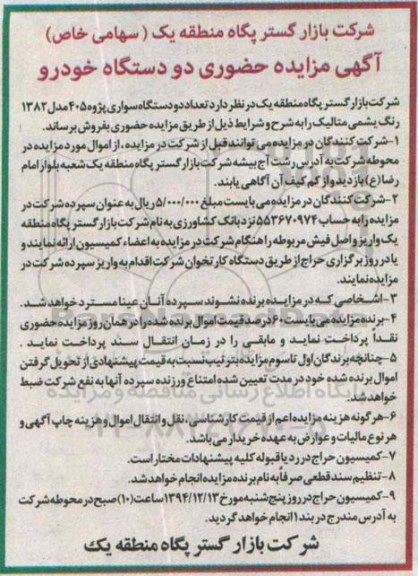 شرکت بازار گستر پگاه منطقه یک ( سهامی خاص)
آگهی مزایده حضوری دو دستگاه خودرو
شرکت بازار گستر پگاه منطقه یک در نظر دارد تعداد دو دستگاه سواری پژو ۴۰۵ مدل ۱۳۸۲
رنگ یشمی متالیک را به شرح و شرایط ذیل از طریق مزایده حضوری بفروش برساند.
۱-شرکت کنندگان در مزایده می توانند قبل از شرکت در مزایده ، از اموال مورد مزایده در
محوطه شرکت به آدرس رشت آج بیشه شرکت بازار گستر پگاه منطقه یک شعبه بلوار امام
رضا (ع) بازدید و از کم کیف آن آگاهی یابند.
۲-شرکت کنندگان در مزایده می بایست مبلغ ۵/۰۰۰/۰۰۰ ریال به عنوان سپرده شرکت در
مزایده را به حساب ۵۵۳۶۷۰۹۷۴ نزد بانک کشاورزی به نام شرکت بازار گستر پگاه منطقه
یک واریز و اصل فیش مربوطه را هنگام شرکت در مزایده به اعضاء کمیسیون ارائه نمایند و
یا در روز برگزاری حراج از طریق دستگاه کارتخوان شرکت اقدام به واریز سپرده شرکت در
مزایده نمایند.
۳-اشخاصی که در مزایده برنده نشوند سپرده آنان عینا مسترد خواهد شد.
۴-برنده مزایده می بایست ۶۰ درصد قیمت اموال برنده شده را در همان روز مزایده حضوری
نقداً پرداخت نماید و مابقی را در زمان انتقال سند پرداخت نماید .
۵-چنانچه برندگان اول تا سوم مزایده بترتیب نسبت به قیمت پیشنهادی از تحویل گرفتن
اموال برنده شده خود در مدت تعیین شده امتناع ورزند سپرده آنها به نفع شرکت ضبط
خواهد شد.
۶-هر گونه هزینه مزایده اعم از قیمت کارشناسی، نقل و انتقال اموال و هزینه چاپ آگهی و
هر نوع مالیات و عوارض به عهده خریدار می باشد.
۷-کمیسیون حراج در رد یا قبول کلیه پیشنهادات مختار است.
۸-تنظیم سند قطعی صرفاً به نام برنده مزایده انجام خواهد شد.
۹-کمیسیون حراج در روز پنج شنبه مورخ ۱۳۹۴/۱۲/۱۳ ساعت (۱۰) صبح در محوطه شرکت
به آدرس مندرج در بند ۱ انجام خواهد گردید.
شرکت بازار گستر پگاه منطقه یک